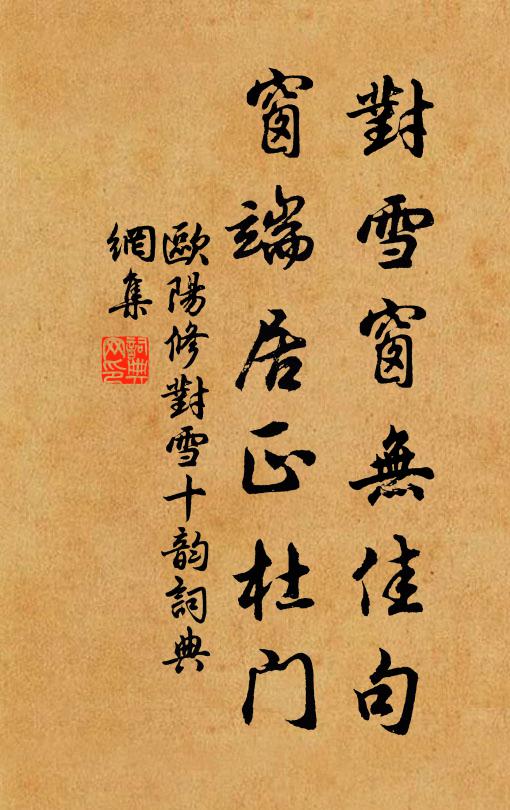 對雪窗無佳句
窗端居正杜門
歐陽修對雪十韵詞典
網集
詞典網印